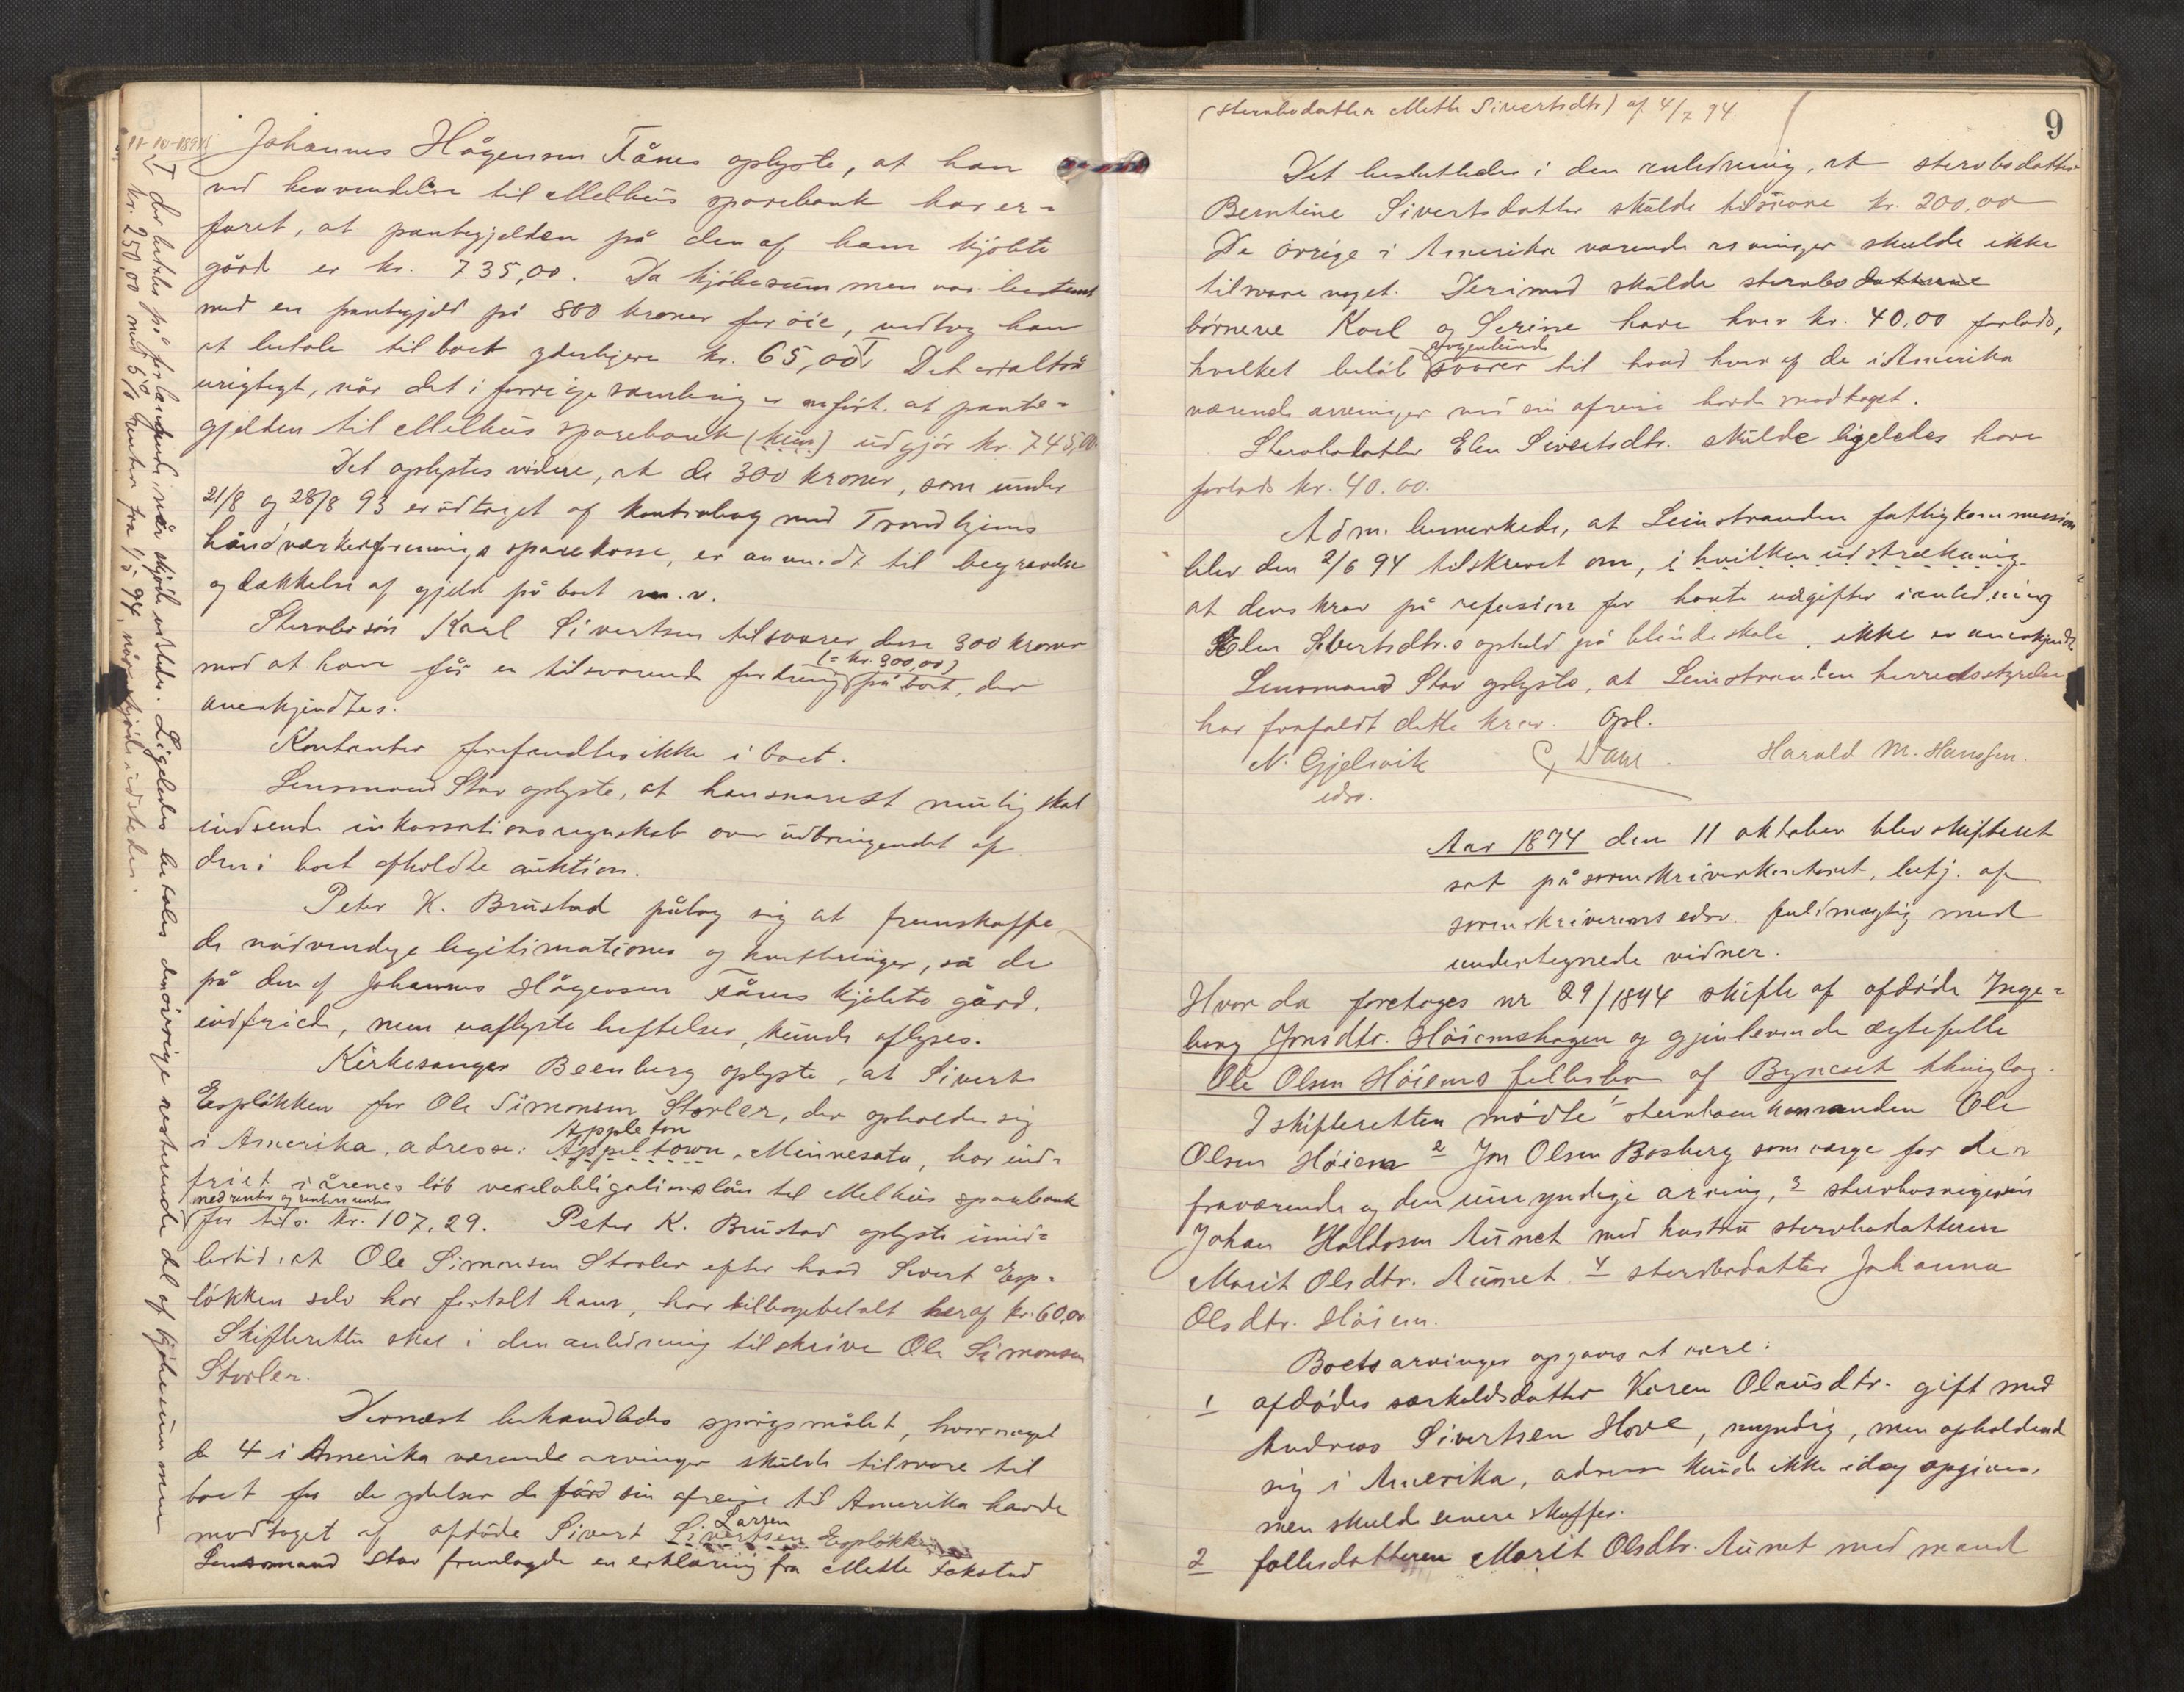 11-10-1894
Johannes Hågensen Fånes oplyste, at han
ved henvendelse til Melhus sparebank har er-
faret, at pantegjelden på den af ham kjøbte
gård er kr. 735,00. Da kjøbesummen var bestemt
med en pantegjeld på 800 kroner for øie, vedtog han
at betale til boet yderligere kr. 65,00 I Det er altså
urigtigt, når det i forrige samling er anført, at pante-
gjelden til Melhus sparebank (kun) udgjør kr. 745,00
Det oplystes videre, at de 300 kroner, som under
21/8 og 28/8 93 er udtaget af kontrabog med Trondhjems
håndværkerforenings sparekasse, er anvendt til begravelse
og dækkelse af gjeld på boet m.v.
Stervbosøn Karl Sivertsen tilsvarer disse 300 kroner
mod at han får en tilsvarende fordring (= kr. 300,00) på boet, der
anerkjendtes.
Kontanter forefandtes ikke i boet.
Lensmand Stav oplyste, at han snarest mulig skal
indsende inkassationsregnskab over udbringendet af
den i boet afholdte auktion.
Peter K. Brustad påtog sig at fremskaffe
de nødvendige legitimationer og kvitteringer, så de
på den af Johannes Hågensen Fånes kjøbte gård,
indfriede, men uaflyste heftelser, kunde aflyses.
Kirkesanger Beenberg oplyste, at Sivert
Espløkken for Ole Simonsen Storler, der opholder sig
i Amerika, adresse: Appeltown Appleton, Minnesota, har ind-
friet i årenes løb vexelobligationslån til Melhus sparebank
med renter og renters renter
for tils. kr. 107,29. Peter K. Brustad oplyste imid-
lertid, at Ole Simonsen Storler efter hvad Sivert Esp-
løkken selv har fortalt ham, har tilbagebetalt heraf kr. 60,00
Skifteretten skal i den anledning tilskrive Ole Simonsen
Storler.
Dernæst behandledes spørgsmålet, hvor meget
de 4 i Amerika værende arvinger skulde tilsvare til
boet for de ydelser de før sin afreise til Amerika havde
modtaget af afdøde Sivert Sivertsen Larsen Espløkken
Lensmand Stav fremlagde en erklæring fra Mette Fokstad
I der betales på forlangende, når skjøde udstedes. Ligeledes betales den øvrige resterende del af kjøbesummen
kr. 250,00 med 5% renter fra 1/5 94, når skjøde udstedes.
9
(stervbodatter Mette Sivertsdtr) af 4/7 94.
Det besluttedes i den anledning, at sterbodatter
Berntine Sivertsdatter skulde tilsvare kr. 200,00
De øvrige i Amerika værende arvinger skulde ikke
tilsvare noget. Derimod skulde stervbodatterne
børnene Karl og Serine have hver kr. 40.00 forlods,
hvilket beløb nogenlunde svarer til hvad hver af de i Amerika
værende arvinger ved sin afreise havde modtaget.
Stervbodatter Elen Sivertsdtr. skulde ligeledes have
forlods kr. 40.00.
Adm. bemerkede, at Leinstranden fattigkommission
blev den 2/6 94 tilskrevet om, i hvilken udstrækning
at dens krav på refusion for havte udgifter i anledning
Elen Sivertsdtr.s ophold på blindeskole, ikke er anerkjendt.
Lensmand Stav oplyste, at Leinstranden herredsstyrelse
har frafaldt dette krav. Opl.
N. Gjelsvik
edsv.
Harald M. Hanssen.
Aar 1894 den 11 oktober blev skifteret
sat på sorenskriverkontoret, betj. af
sorenskriverens edsv. fuldmægtig med
undertegnede vidner.
Hvor da foretages nr 29/1894 skifte af afdøde Inge-
borg Jonsdtr. Høiemshagen og gjenlevende ægtefelle
Ole Olsen Høiems fellesbo af Byneset thinglag.
I skifteretten mødte 1 stervboenkemanden Ole
Olsen Høiem 2 Jon Olsen Bosberg som værge for den
fraværende og den umyndige arving, 3 stervbosvigersøn
Johan Haldosen Aunet med hustru stervbodatteren
Marit Olsdtr. Aunet. 4 stervbodatter Johanna
Olsdtr. Høiem.
Boets arvinger opgaves at være:
1 afdødes særkuldsdatter Karen Olausdtr. gift med
Andreas Sivertsen Hove, myndig, men opholdende
sig i Amerika, adresse kunde ikke idag opgives,
men skulde senere skaffes.
2 fellesdatteren Marit Olsdtr. Aunet med mand